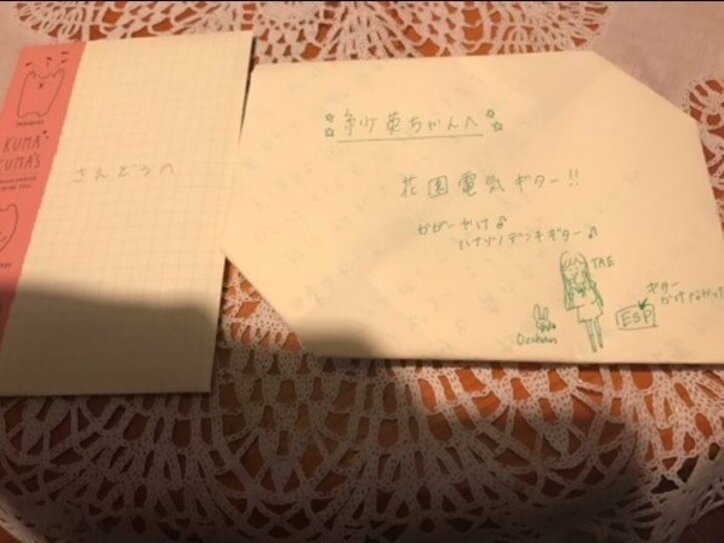 KUMA
KUMA'S
さんどうへ
紗英ちゃんへ
花園電気ギター!!
かがーやけ♪
ハナゾノデンキギター♪
TAE
Occhan
ESP
ギター
かけなかった